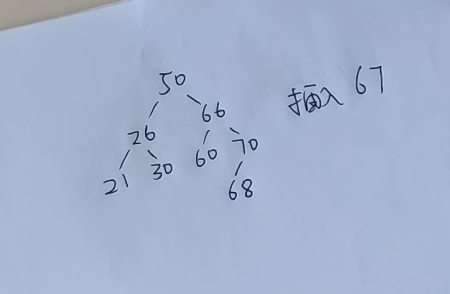 50
26 66
21 30 60 70
68
插入 67